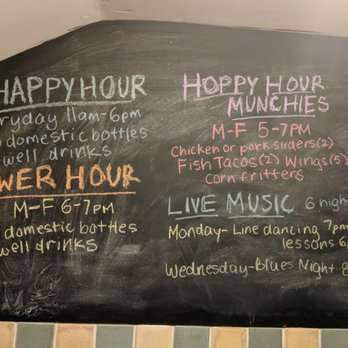 HAPPY HOUR
11am-6pm
domestic bottles
well drinks
HOUR
M-F 6-7PM
domestic bottles
well drinks
HOPPY HOUR
MUNCHIES
M-F 5-7PM
Chicken or pork sliders(2)
Fish Tacos(2) Wings(5)
Corn fritters
LIVE MUSIC 6 night
Monday- Line dancing 7pm
lessons 6p
Wednesday-Blues Night 8